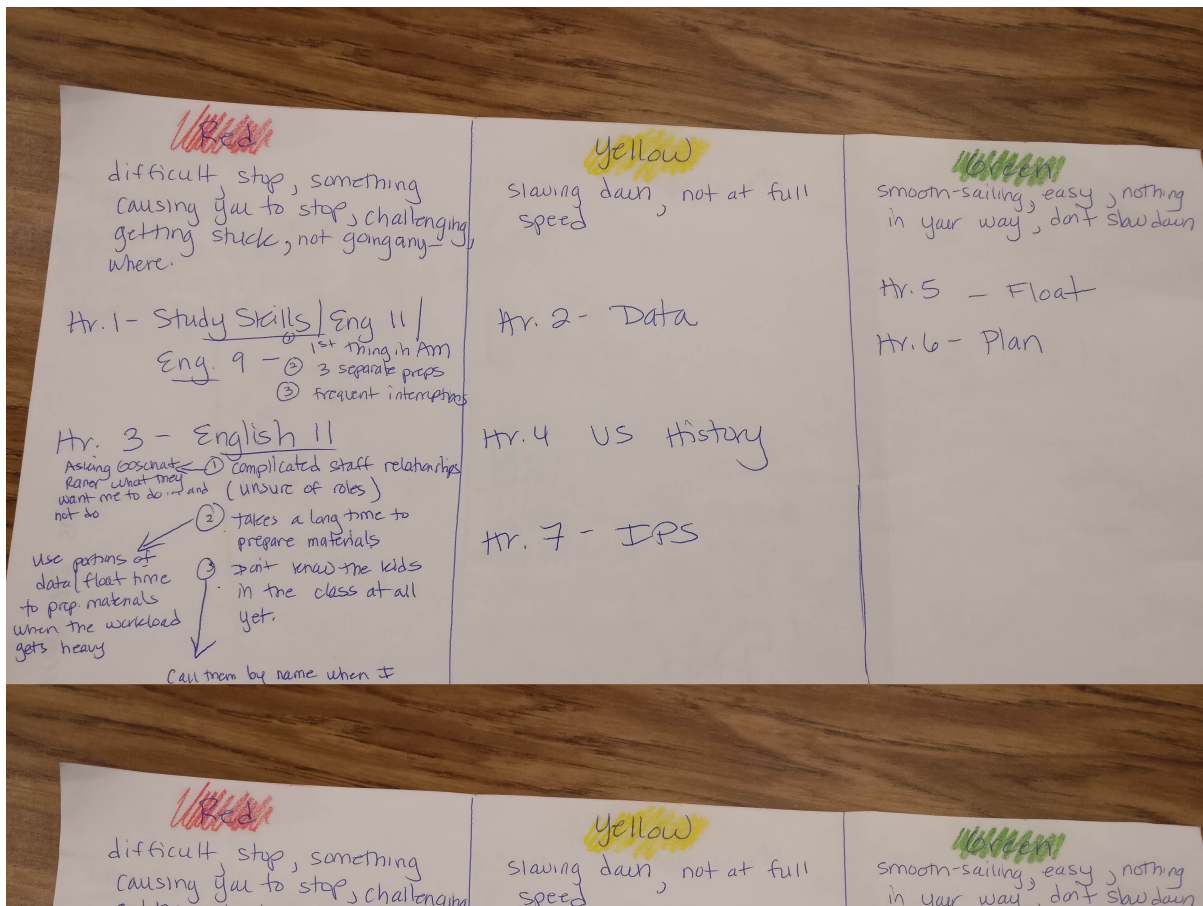 Red
difficult, stop, something
causing you to stop, challenging,
getting stuck, not going any-
where.
Hr. 1 - Study Skills / Eng 11 /
Eng. 9 - ① 1st thing in AM
② 3 separate preps
③ frequent interruptions
Hr. 3 - English 11
① complicated staff relationships
(unsure of roles)
Asking
what they
want me to do... and
not do
② takes a long time to
prepare materials
use portions of
data/float time
to prep. materials
when the workload
gets heavy
③ Don't know the kids
in the class at all
yet.
Call them by name when I
Yellow
slowing down, not at full
speed
Hr. 2 - Data
Hr. 4 US History
Hr. 7 - IPS
Green
smooth-sailing, easy, nothing
in your way, don't slow down
Hr. 5 - Float
Hr. 6 - Plan
Red
difficult, stop, something
causing you to stop, challenging
Yellow
slowing down, not at full
speed
Green
smooth-sailing, easy, nothing
in your way, don't slow down